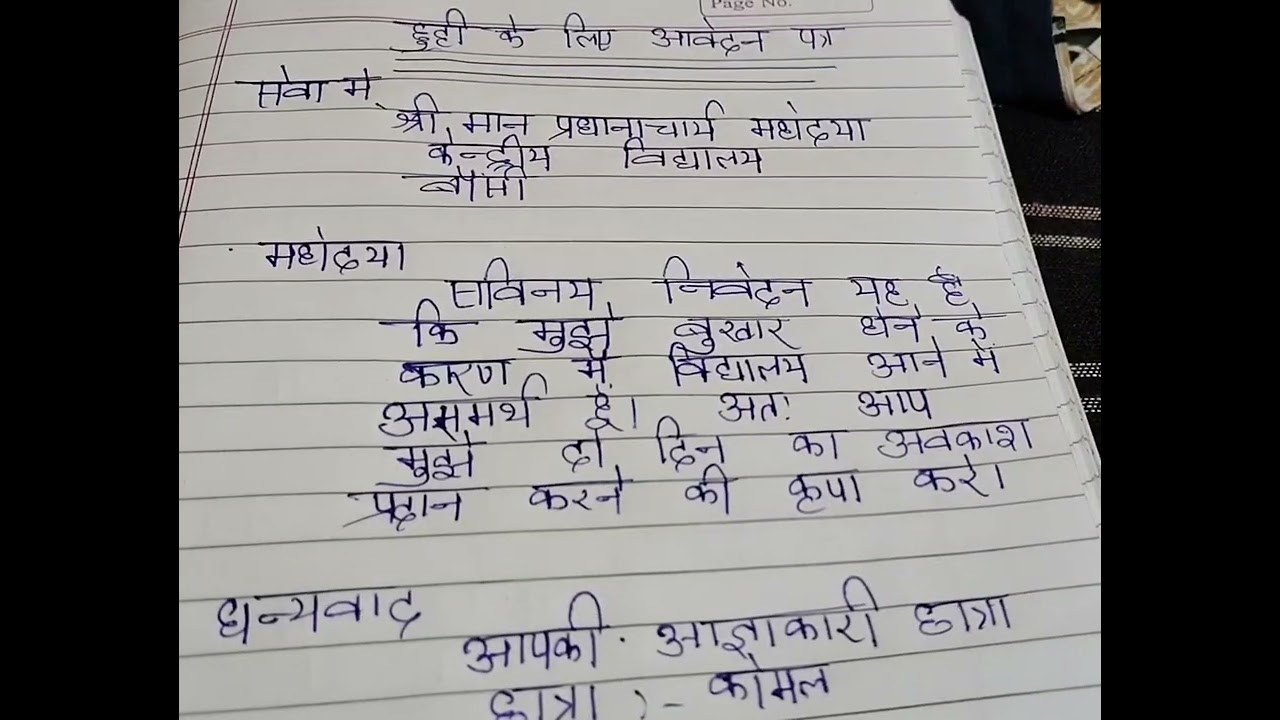 Page No.
छुट्टी के लिए आवेदन पत्र
सेवा में
श्री मान प्रधानाचार्य महोदया
केन्द्रीय विद्यालय
बौसी
महोदया
सविनय निवेदन यह है
कि मुझे बुखार होने के
कारण में विद्यालय आने में
असमर्थ हूँ। अतः आप
मुझे दो दिन का अवकाश
प्रदान करने की कृपा करे।
धन्यवाद
आपकी आज्ञाकारी छात्रा
छात्रा :- कोमल